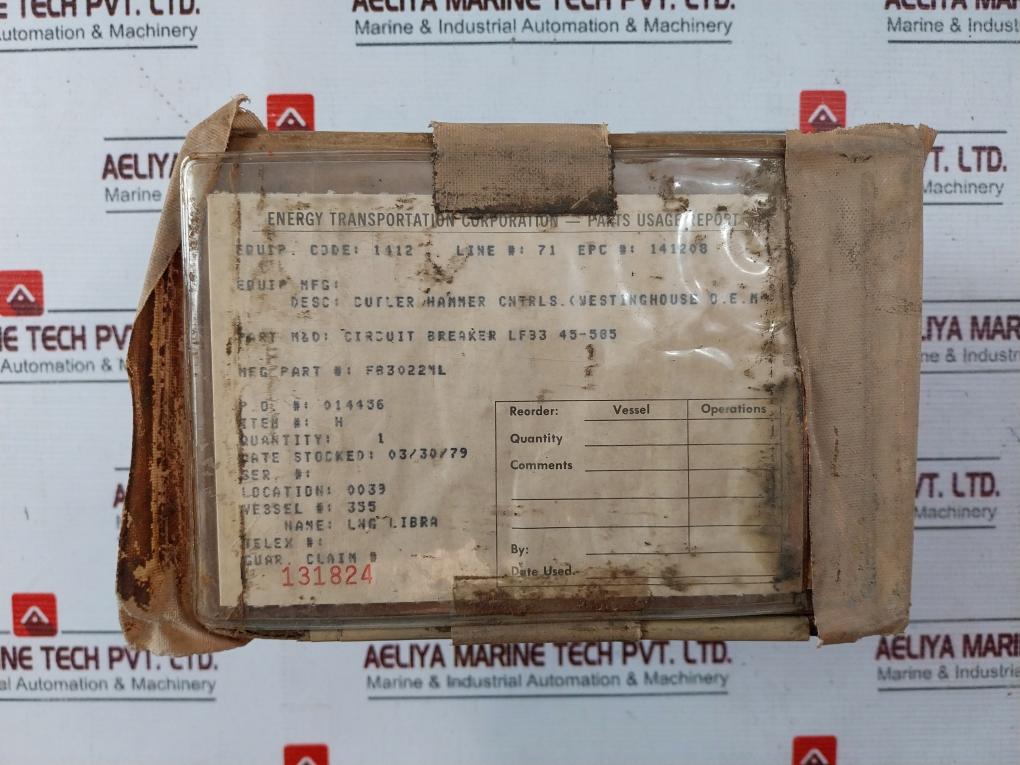 E TECH PVT. LTD.
Automation & Machinery
AELIYA MARINE TECH PVT. LTD.
Marine & Industrial Automation & Machinery
AELIYA MARINE
Marine & Industrial
AELIYA
Marine
VT. LTD.
Machinery
ENERGY TRANSPORTATION CORPORATION — PARTS USAGE REPORT
EQUIP. CODE: 1412 LINE #: 71 EPC #: 141208
EQUIP MFG:
DESC: CUTLER HAMMER CNTRLS.(WESTINGHOUSE O.E.M
PART M&D: CIRCUIT BREAKER LFB3 45-585
MFG PART #: FB3022ML
P.O. #: 014436
ITEM #: H
QUANTITY: 1
DATE STOCKED: 03/30/79
SER. #:
LOCATION: 0039
VESSEL #: 355
NAME: LNG LIBRA
TELEX #:
GUAR. CLAIM #
131824
Reorder: Vessel Operations
Quantity
Comments
By:
Date Used
NE TECH
Automation &
LIYA MAR
ne & Indus
VT. LTD.
Machinery
INE TECH PVT. LTD.
al Automation & Machinery
AELIYA MARINE TECH PVT. LTD.
Marine & Industrial Automation & Machinery
AELIYA MAR
Marine & Indust